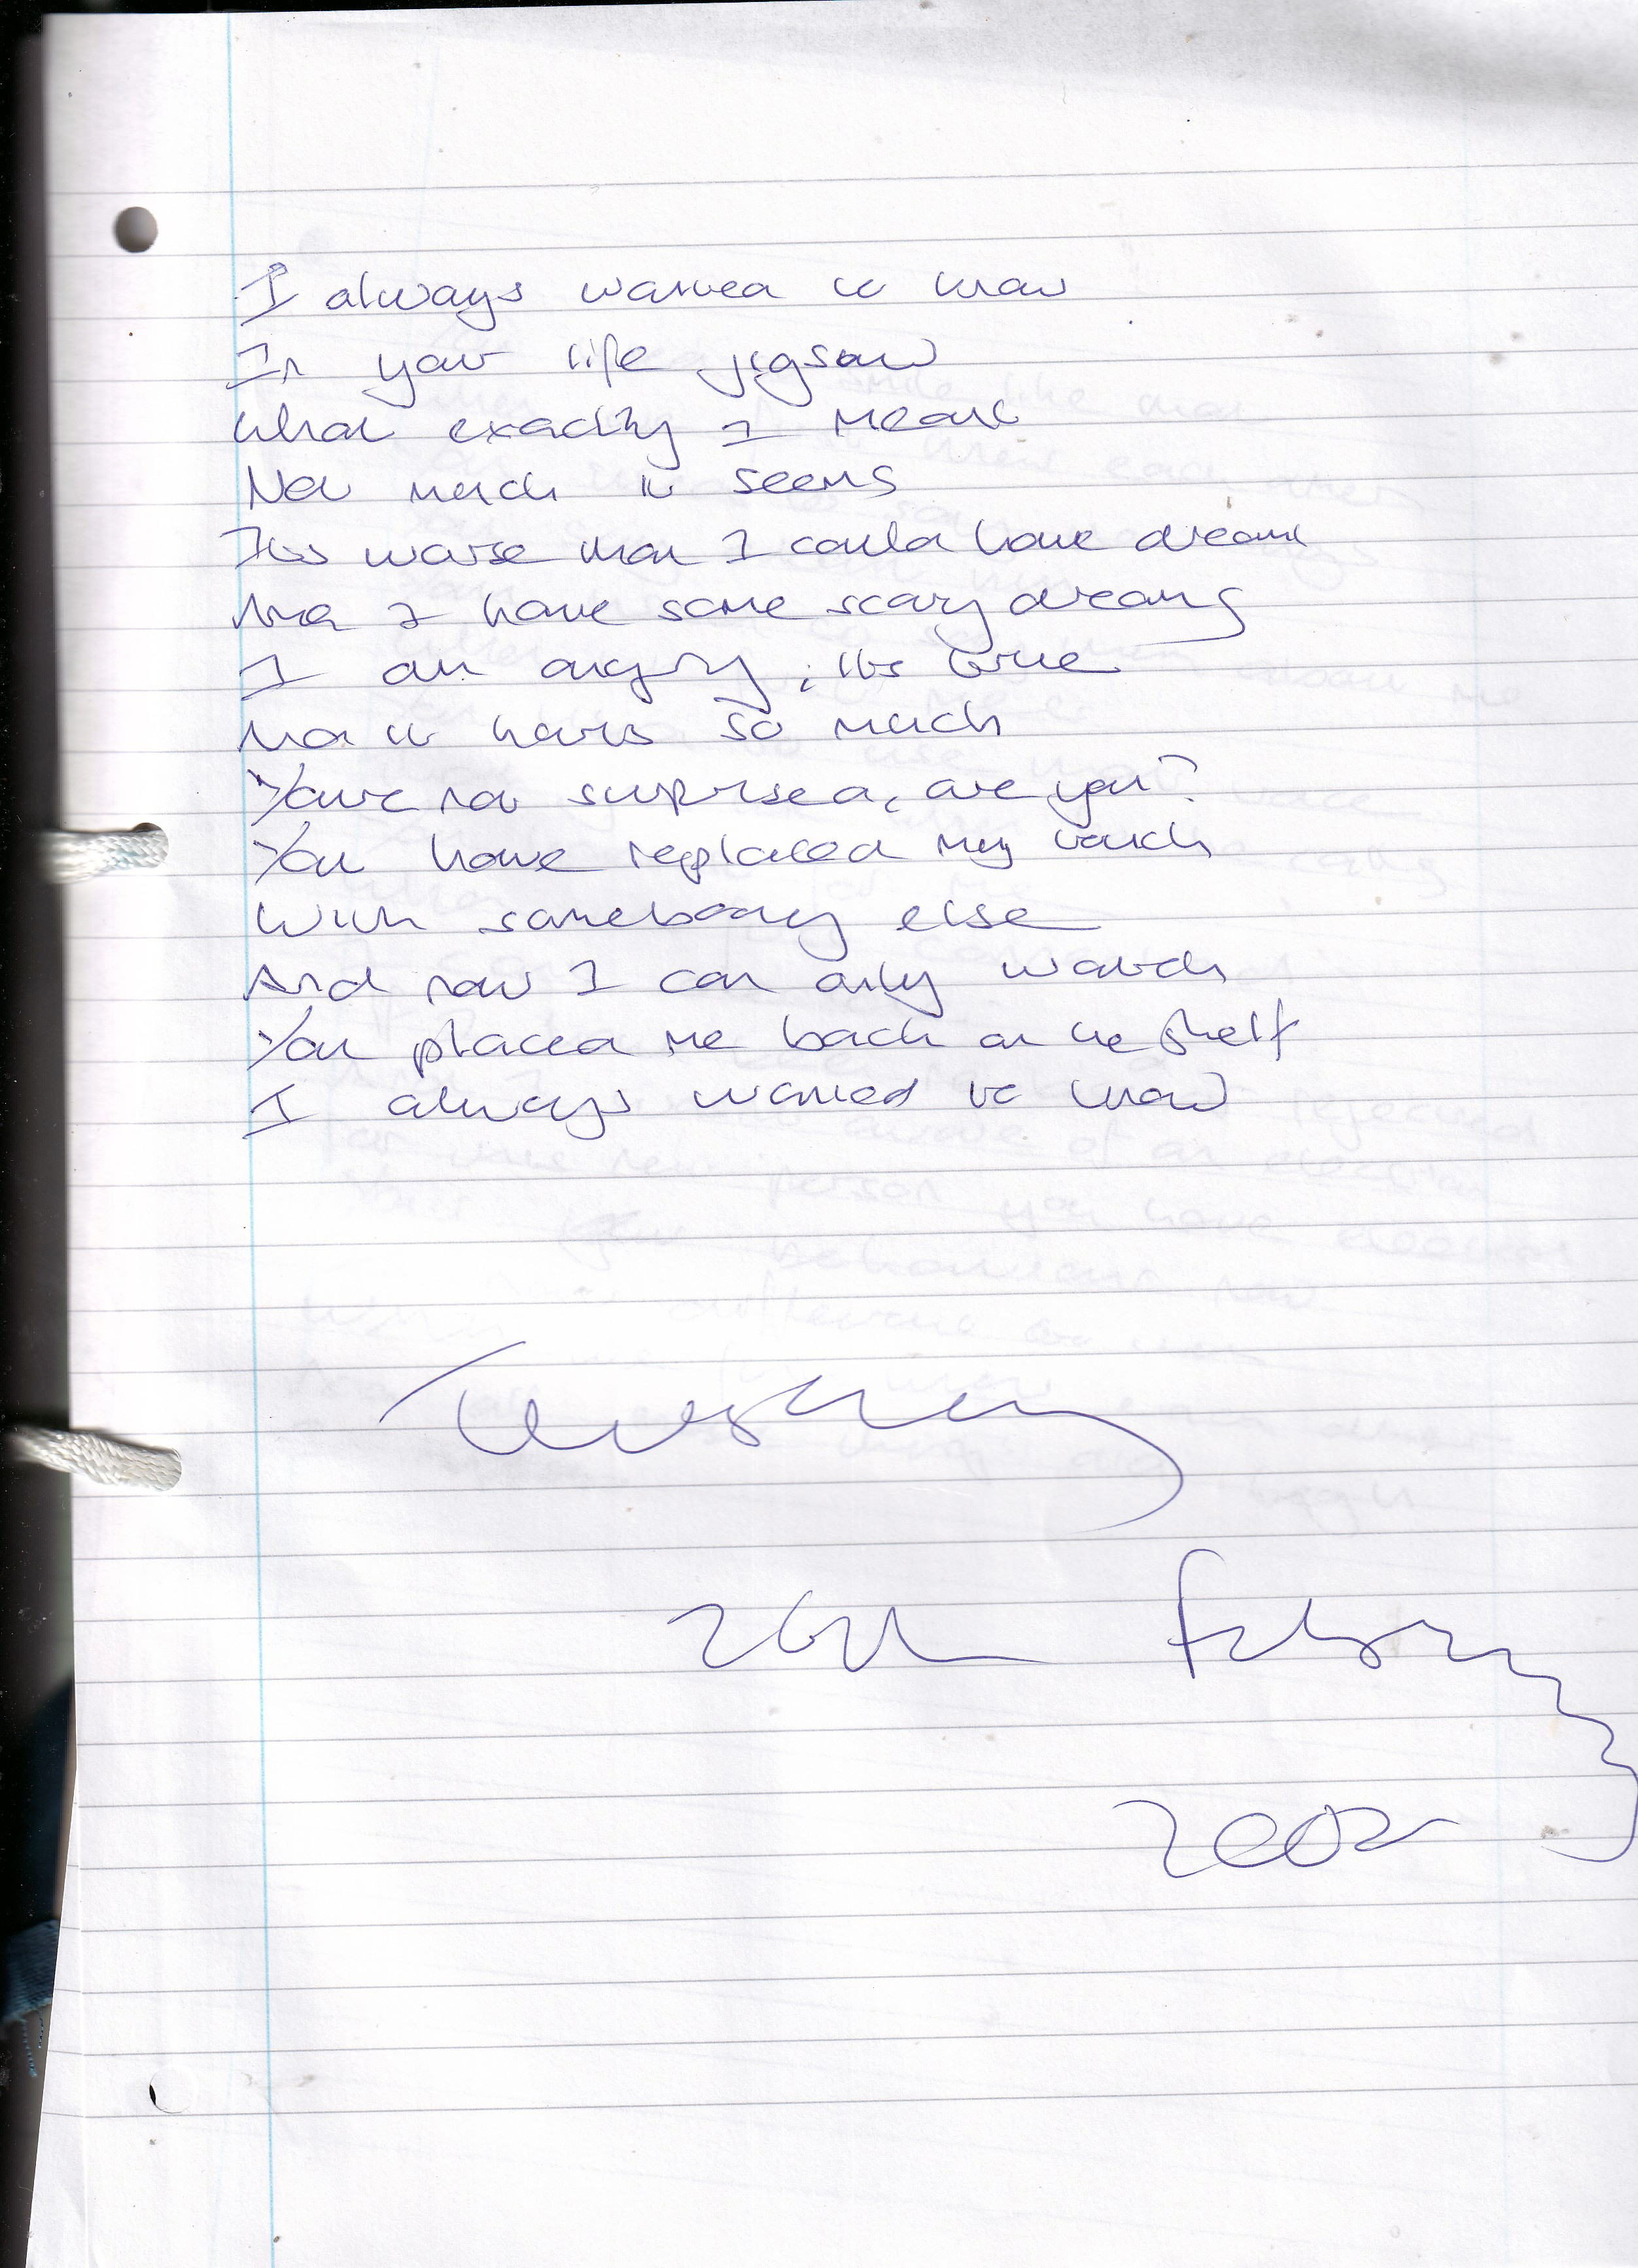 I always wanted to know
In your life jigsaw
What exactly I meant
Not much it seems
Its worse than I could have dreamt
And I have some scary dreams
I am angry, its true
that it hurts so much
Your not surprised, are you?
You have replaced my touch
With somebody else
And now I can only watch
You placed me back on the shelf
I always wanted to know
Tuesday
26th February
2002